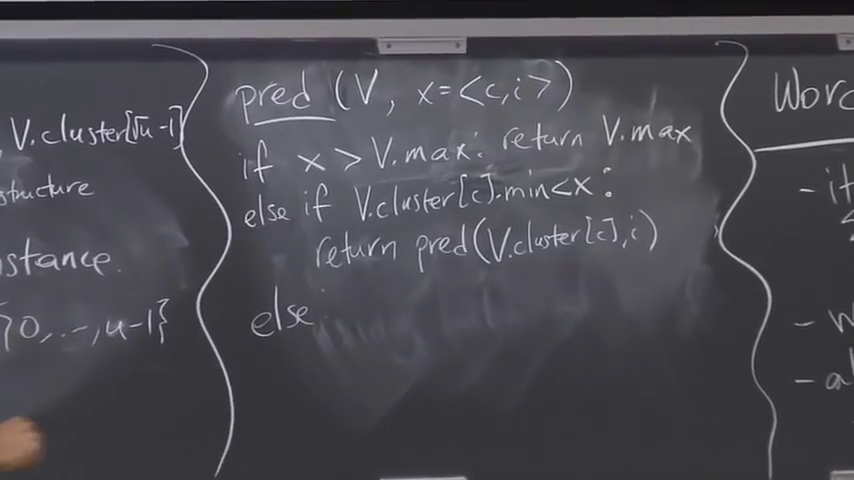 V.cluster[√u-1]
structure
{0,...,u-1}
pred (V, x=<c,i>)
if x > V.max: return V.max
else if V.cluster[c].min<x:
return pred(V.cluster[c],i)
else